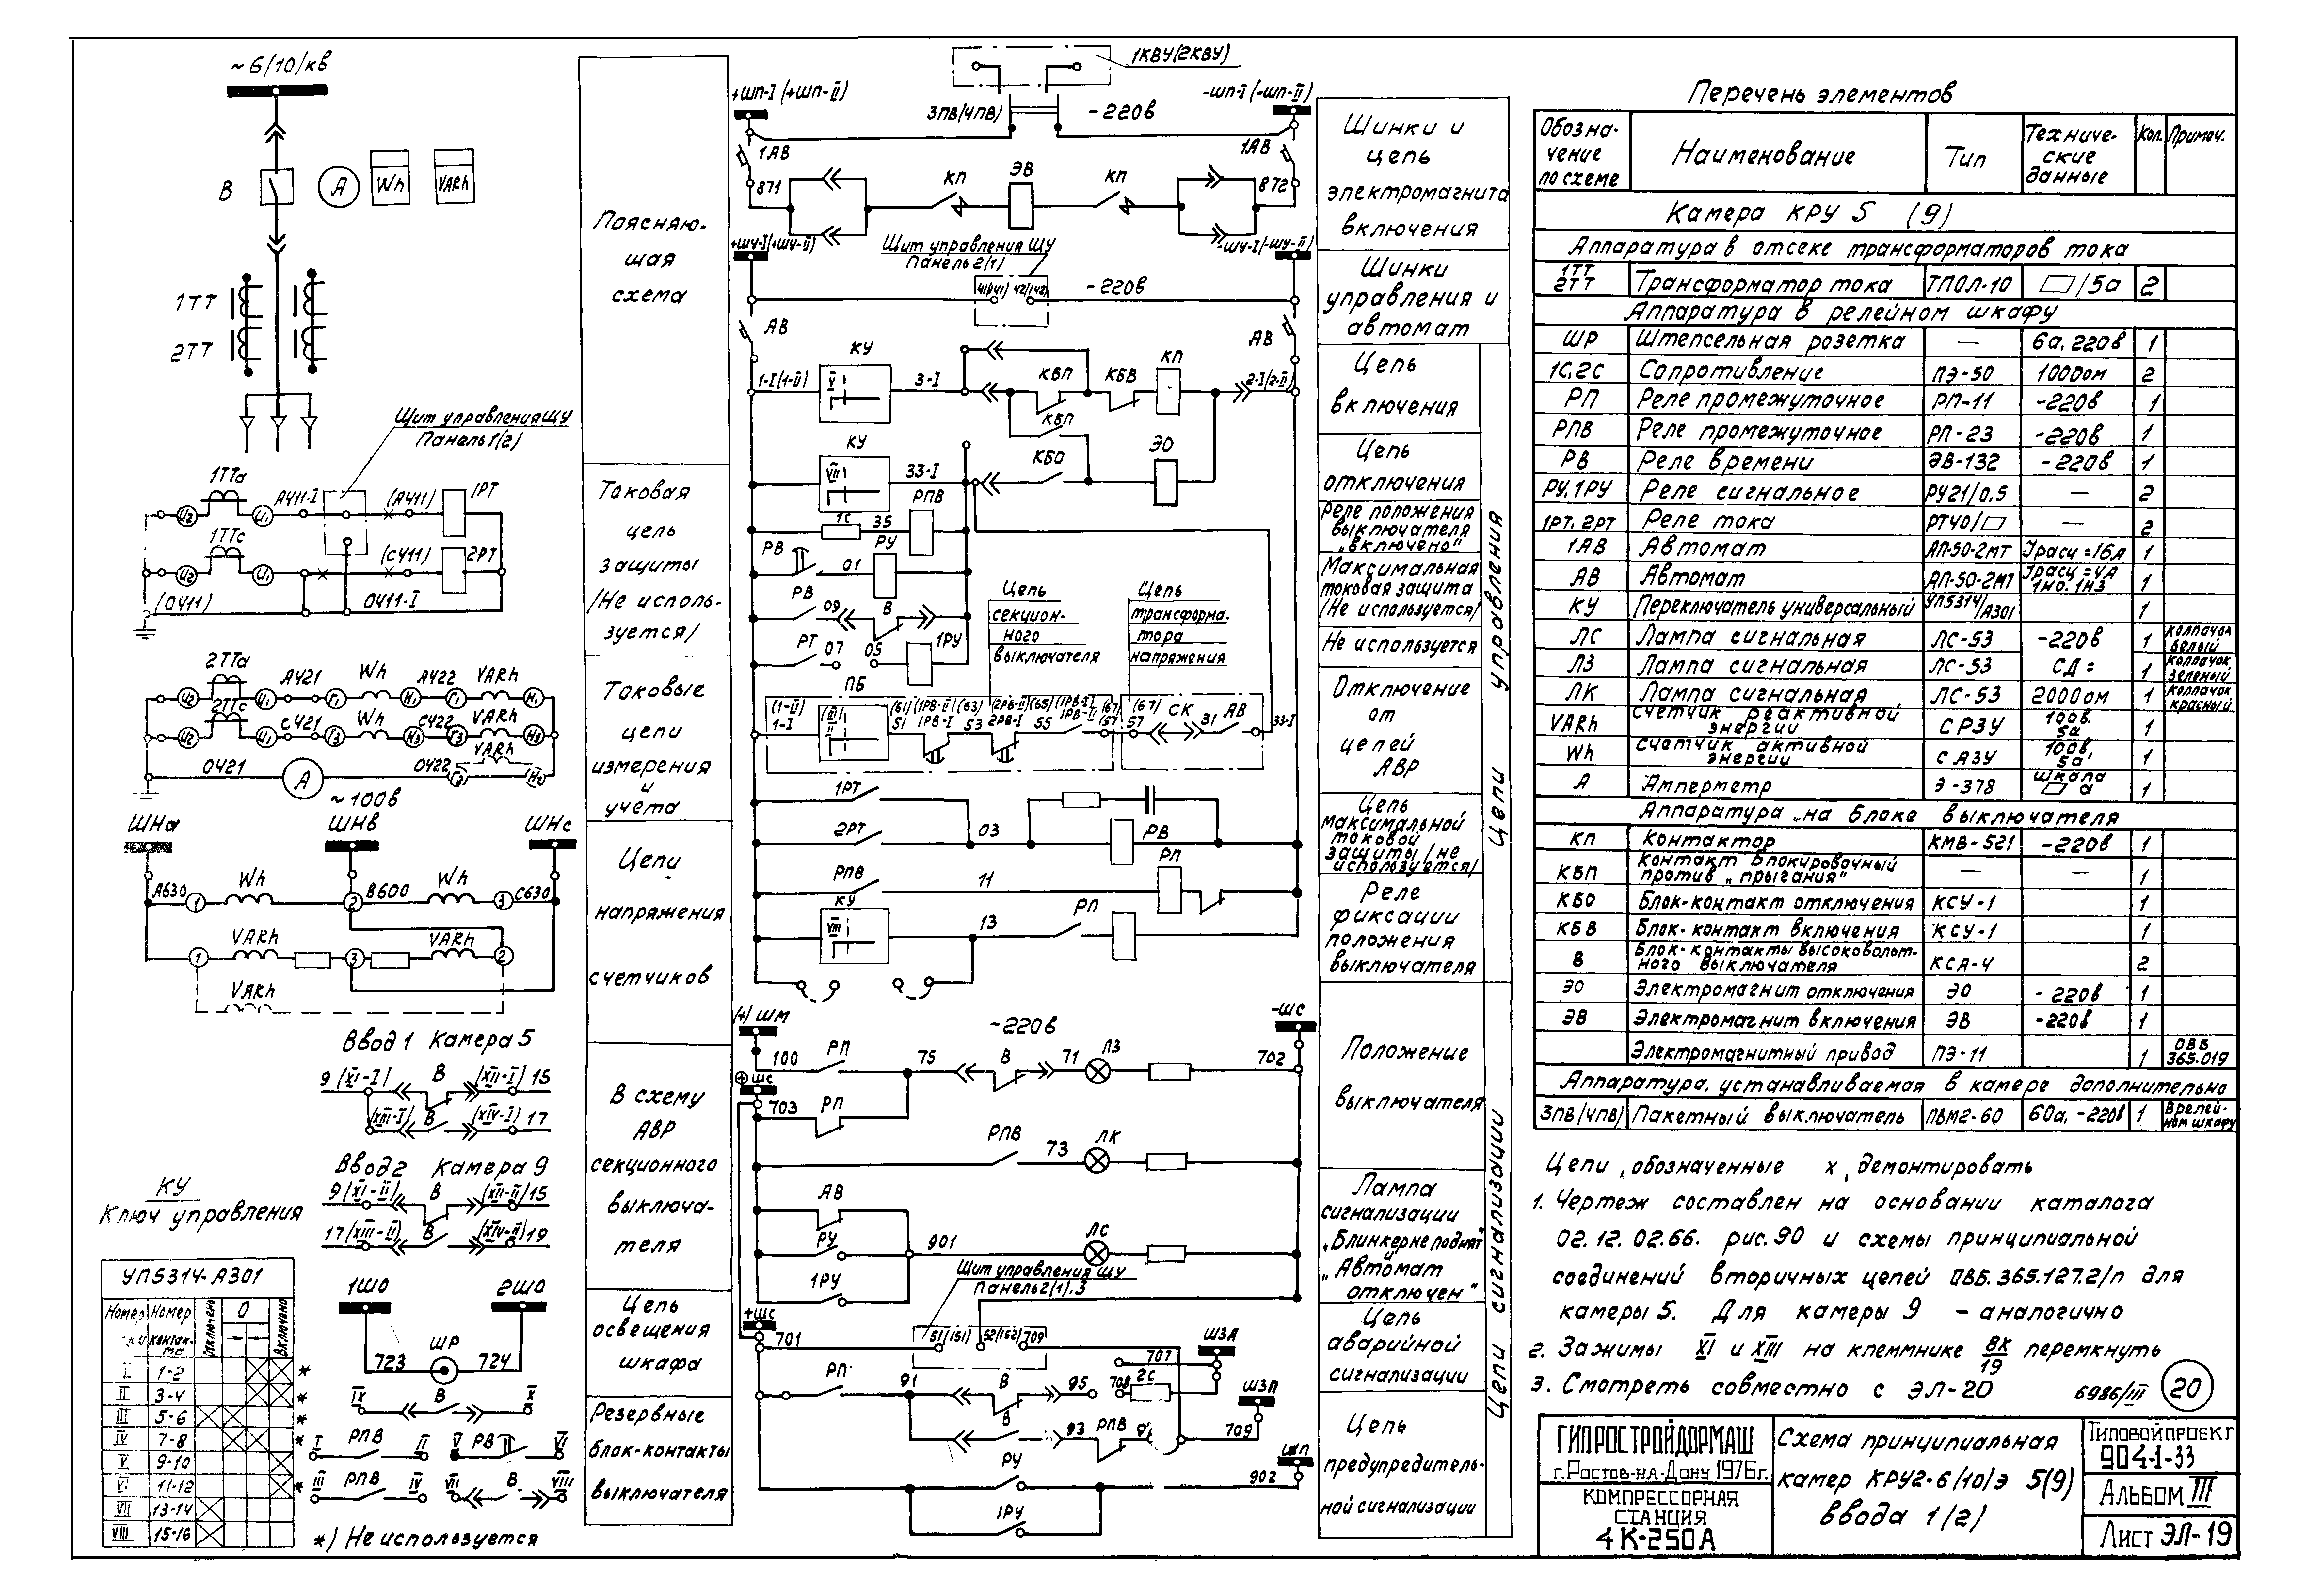 ~6/10/кв
В
А
Wh
VARh
1ТТ
2ТТ
Щит управления ЩУ
Панель 1(2)
1ТТа
А411-I
(А411)
1РТ
И2
И1
1ТТс
(С411)
2РТ
И2
И1
(0411)
0411-I
2ТТа
А421
Wh
А422
VARh
И2
И1
Г1
Н1
Г1
Н1
2ТТс
С421
Wh
С422
VARh
И2
И1
Г3
Н3
Г3
Н3
VARh
0421
А
0422
Г2
Н2
~100в
ШНа
ШНв
ШНс
А630
1
Wh
2
В600
Wh
3
С630
VARh
VARh
1
3
2
VARh
Ввод 1 Камера 5
9 (XI-I)
В
(XII-I) 15
(XIII-I)
В
(XIV-I) 17
Ввод 2 Камера 9
9 (XI-II)
В
(XII-II) 15
17 (XIII-II)
В
(XIV-II) 19
КУ
Ключ управления
УП5314-А301
Номер
Номер
контак-
та
Отключено
0
Включено
I 1-2 *
II 3-4 *
III 5-6 *
IV 7-8 *
V 9-10
VI 11-12 *
VII 13-14
VIII 15-16
*) Не используется
1ШО
2ШО
ШР
723
724
IX
В
X
I
РПВ
II
V
РВ
VI
III
РПВ
IV
VII
В
VIII
Поясняю-
щая
схема
Токовая
цепь
защиты
/Не исполь-
зуется/
Токовые
цепи
измерения
и
учета
Цепи
напряжения
счетчиков
В схему
АВР
секционного
выключа-
теля
Цепь
освещения
шкафа
Резервные
блок-контакты
выключателя
1КВУ(2КВУ)
+ШП-I (+ШП-II)
-ШП-I (-ШП-II)
3ПВ(4ПВ)
-220в
1АВ
1АВ
871
КП
ЭВ
КП
872
+ШУ-I (+ШУ-II)
Щит управления ЩУ
Панель 2(1)
-ШУ-I (-ШУ-II)
41(141)
42(142)
-220в
АВ
АВ
КУ
КП
1-I (1-II)
V
3-I
КБП
КБВ
2-I (2-II)
КБП
КУ
ЭО
VIII
33-I
КБО
РПВ
1С
35
РВ
РУ
01
РВ
09
В
РТ
07
05
1РУ
Цепь
секцион-
ного
выключателя
Цепь
трансформа-
тора
напряжения
ПБ
(1-II)
1-I
(III)
II
(61)
51
(1РВ-II)
1РВ-I
(63)
53
(2РВ-II)
2РВ-I
(65)
55
(1РВ-I)
1РВ-II
(67)
(57)
(67)
57
СК
31
АВ
33-I
1РТ
2РТ
03
РВ
РПВ
11
РП
КУ
VIII
13
РП
(+) ШМ
~220в
-ШС
100
РП
75
В
71
ЛЗ
702
⊕ ШС
703
РП
РПВ
73
ЛК
АВ
РУ
901
ЛС
1РУ
Щит управления ЩУ
Панель 2(1).3
+ШС
701
51(151)
52(152)
709
ШЗА
707
РП
91
В
95
708
2С
ШЗП
В
93
РПВ
709
РУ
ШП
902
1РУ
Шинки и
цепь
электромагнита
включения
Шинки
управления и
автомат
Цепь
включения
Цепь
отключения
Реле положения
выключателя
„включено"
Максимальная
токовая защита
/Не используется/
Не используется
Отключение
от
цепей
АВР
Цепь
максимальной
токовой
защиты /не
используется/
Реле
фиксации
положения
выключателя
Цепи управления
Положение
выключателя
Лампа
сигнализации
„Блинкер не поднят"
и
„Автомат
отключен"
Цепь
аварийной
сигнализации
Цепь
предупредитель-
ной сигнализации
Цепи сигнализации
Перечень элементов
Обозна-
чение
по схеме
Наименование
Тип
Техниче-
ские
данные
Кол.
Примеч.
Камера КРУ 5 (9)
Аппаратура в отсеке трансформаторов тока
1ТТ
2ТТ
Трансформатор тока ТПОЛ-10 /5а 2
Аппаратура в релейном шкафу
ШР Штепсельная розетка — 6а, 220в 1
1С, 2С Сопротивление ПЭ-50 1000ом 2
РП Реле промежуточное РП-11 -220в 1
РПВ Реле промежуточное РП-23 -220в 1
РВ Реле времени ЭВ-132 -220в 1
РУ, 1РУ Реле сигнальное РУ21/0,5 — 2
1РТ, 2РТ Реле тока РТ40/ — 2
1АВ Автомат АП-50-2МТ Iрасц=16А 1
АВ Автомат АП-50-2МТ Iрасц=4А 1но.1нз 1
КУ Переключатель универсальный УП5314/А301 1
ЛС Лампа сигнальная ЛС-53 -220в 1 колпачок белый
ЛЗ Лампа сигнальная ЛС-53 СД= 1 колпачок зеленый
ЛК Лампа сигнальная ЛС-53 2000ом 1 колпачок красный
VARh Счетчик реактивной энергии СРЗУ 100в. 5а 1
Wh Счетчик активной энергии САЗУ 100в, 5а 1
А Амперметр Э-378 шкала а 1
Аппаратура на блоке выключателя
КП Контактор КМВ-521 -220в 1
КБП Контакт блокировочный против „прыгания" — — 1
КБО Блок-контакт отключения КСУ-1 1
КБВ Блок-контакт включения КСУ-1 1
В Блок-контакты высоковольт-
ного выключателя КСА-4 2
ЭО Электромагнит отключения ЭО -220в 1
ЭВ Электромагнит включения ЭВ -220в 1
Электромагнитный привод ПЭ-11 1 ОВВ 365.019
Аппаратура, устанавливаемая в камере дополнительно
3ПВ(4ПВ) Пакетный выключатель ПВМ2-60 60а, -220в 1 В релей-
ном шкафу
Цепи, обозначенные х, демонтировать
1. Чертеж составлен на основании каталога
02.12.02.66. рис.90 и схемы принципиальной
соединений вторичных цепей ОВБ.365.127.2/п для
камеры 5. Для камеры 9 - аналогично
2. Зажимы XI и XIII на клеммнике ВК/19 перемкнуть
3. Смотреть совместно с ЭЛ-20
6986/III
20
ГИПРОСТРОЙДОРМАШ
г. Ростов-на-Дону 1976г.
КОМПРЕССОРНАЯ
СТАНЦИЯ
4К-250А
Схема принципиальная
камер КРУ2-6/10/Э 5(9)
ввода 1/2)
ТИПОВОЙ ПРОЕКТ
904-1-33
АЛЬБОМ III
Лист ЭЛ-19